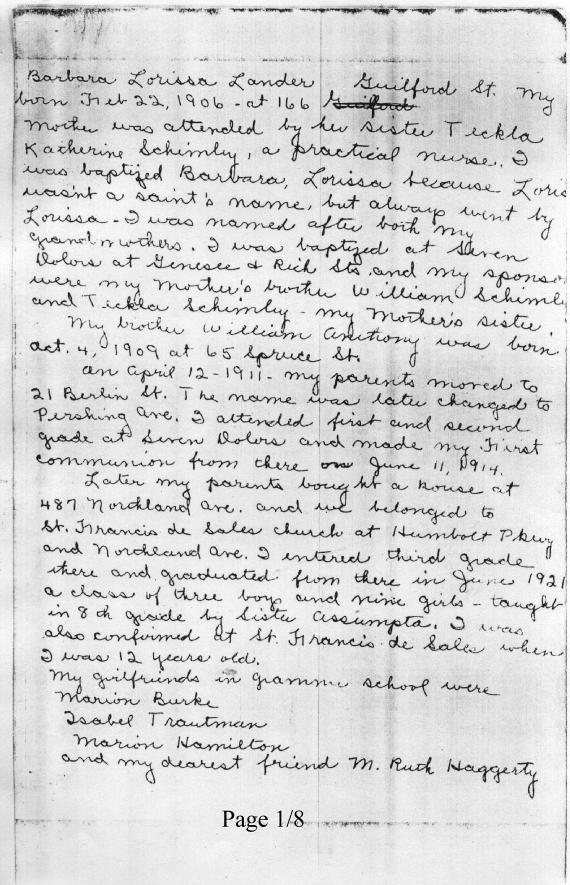 Barbara Lorissa Lander Guilford St. My
born Feb 22, 1906 - at 166 Guilford
mother was attended by her sister Teckla
Katherine Schimley, a practical nurse. I
was baptized Barbara, Lorissa because Loris
wasn't a saint's name, but always went by
Lorissa - I was named after both my
grandmothers. I was baptized at Seven
Dolors at Genesee & Rich Sts. and my sponso
were my mother's brother William Schimley
and Teckla Schimley - my mother's sister.
My brother William Anthony was born
Oct. 4, 1909 at 65 Spruce St.
On April 12 - 1911 - my parents moved to
21 Berlin St. The name was later changed to
Pershing Ave. I attended first and second
grade at Seven Dolors and made my First
Communion from there on June 11, 1914.
Later my parents bought a house at
487 Northland Ave. and we belonged to
St. Francis de Sales church at Humbolt Pkwy
and Northland Ave. I entered third grade
there and graduated from there in June 1921
a class of three boys and nine girls - taught
in 8th grade by Sister Assumpta. I was
also confirmed at St. Francis de Sales when
I was 12 years old.
My girlfriends in grammer school were
Marion Burke
Isabel Trautman
Marion Hamilton
and my dearest friend M. Ruth Haggerty
Page 1/8